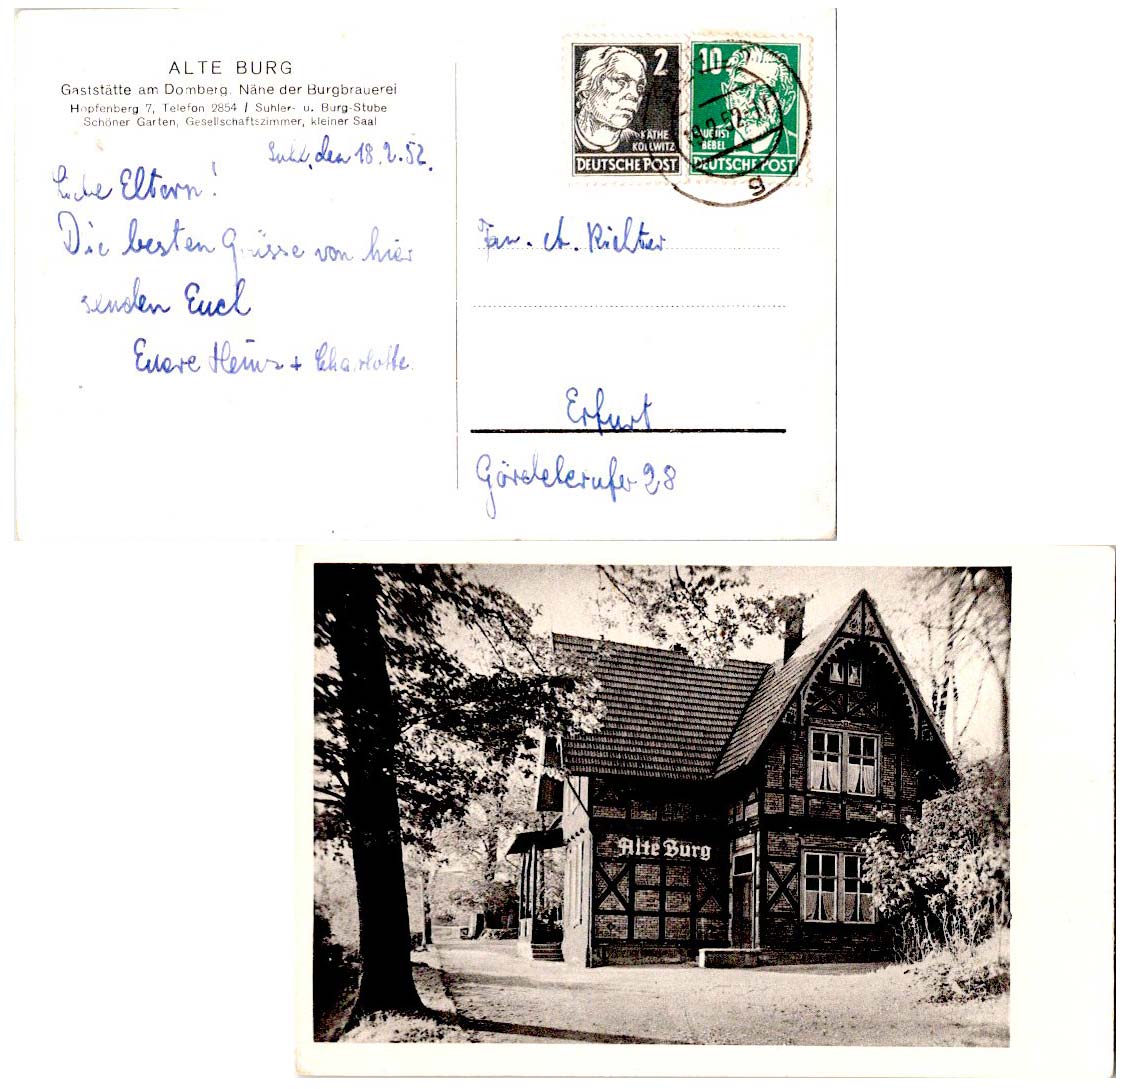 ALTE BURG
Gaststätte am Domberg. Nähe der Burgbrauerei
Hopfenberg 7, Telefon 2854 / Suhler- u. Burg-Stube
Schöner Garten, Gesellschaftszimmer, kleiner Saal
Suhl, den 18.2.52.
Liebe Eltern!
Die besten Grüsse von hier
senden Euch
Euere Heinz + Charlotte.
2
KÄTHE
KOLLWITZ
DEUTSCHE POST
10
AUGUST
BEBEL
DEUTSCHE POST
19.2.52-17
g
Fam. A. Richter
Erfurt
28
Alte Burg